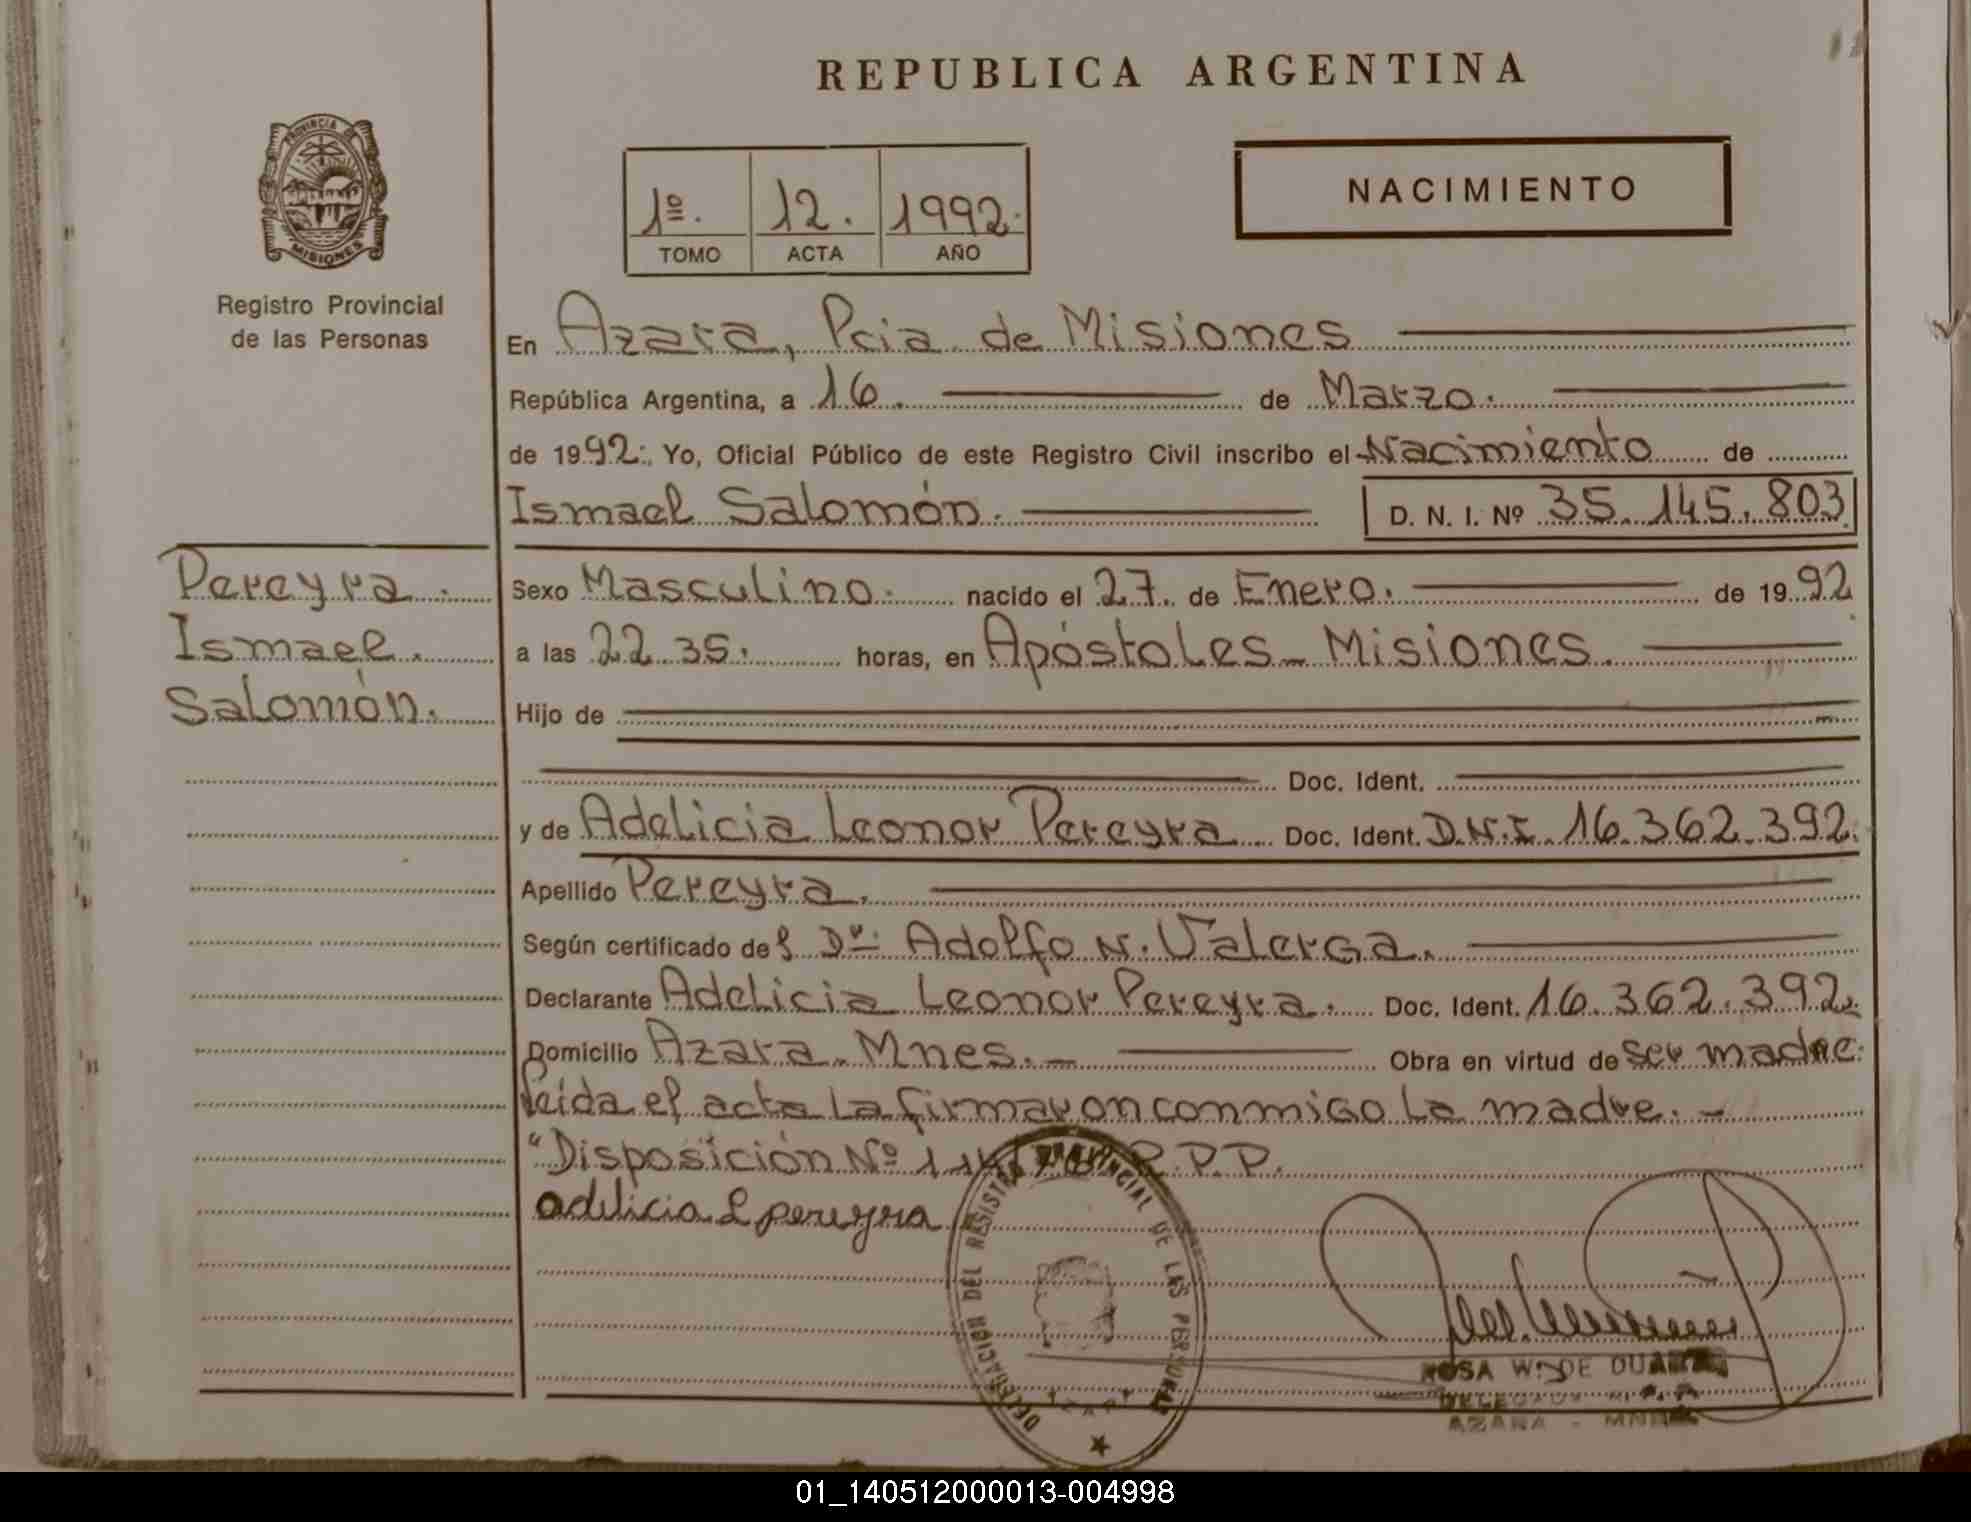 REPUBLICA ARGENTINA
PROVINCIA DE
MISIONES
Registro Provincial
de las Personas
1º. 12. 1992.
TOMO ACTA AÑO
NACIMIENTO
En Azara, Pcia. de Misiones
República Argentina, a 16. de Marzo.
de 1992. Yo, Oficial Público de este Registro Civil inscribo el Nacimiento de
Ismael Salomón. D. N. I. Nº 35.145.803
Pereyra.
Ismael.
Salomón.
Sexo Masculino. nacido el 27. de Enero. de 1992
a las 22.35. horas, en Apóstoles - Misiones.
Hijo de
Doc. Ident.
y de Adelicia Leonor Pereyra Doc. Ident. D.N.I. 16.362.392.
Apellido Pereyra.
Según certificado del Dr. Adolfo N. Valerga.
Declarante Adelicia Leonor Pereyra. Doc. Ident. 16.362.392.
Domicilio Azara - Mnes. - Obra en virtud de ser madre.
Leída el acta la firmaron conmigo la madre. -
"Disposición Nº R.P.P.
adelicia L pereyra
DELEGACION DEL REGISTRO PROVINCIAL DE LAS PERSONAS
AZARA
ROSA W. DE DUARTE
AZARA - MNES
01_140512000013-004998